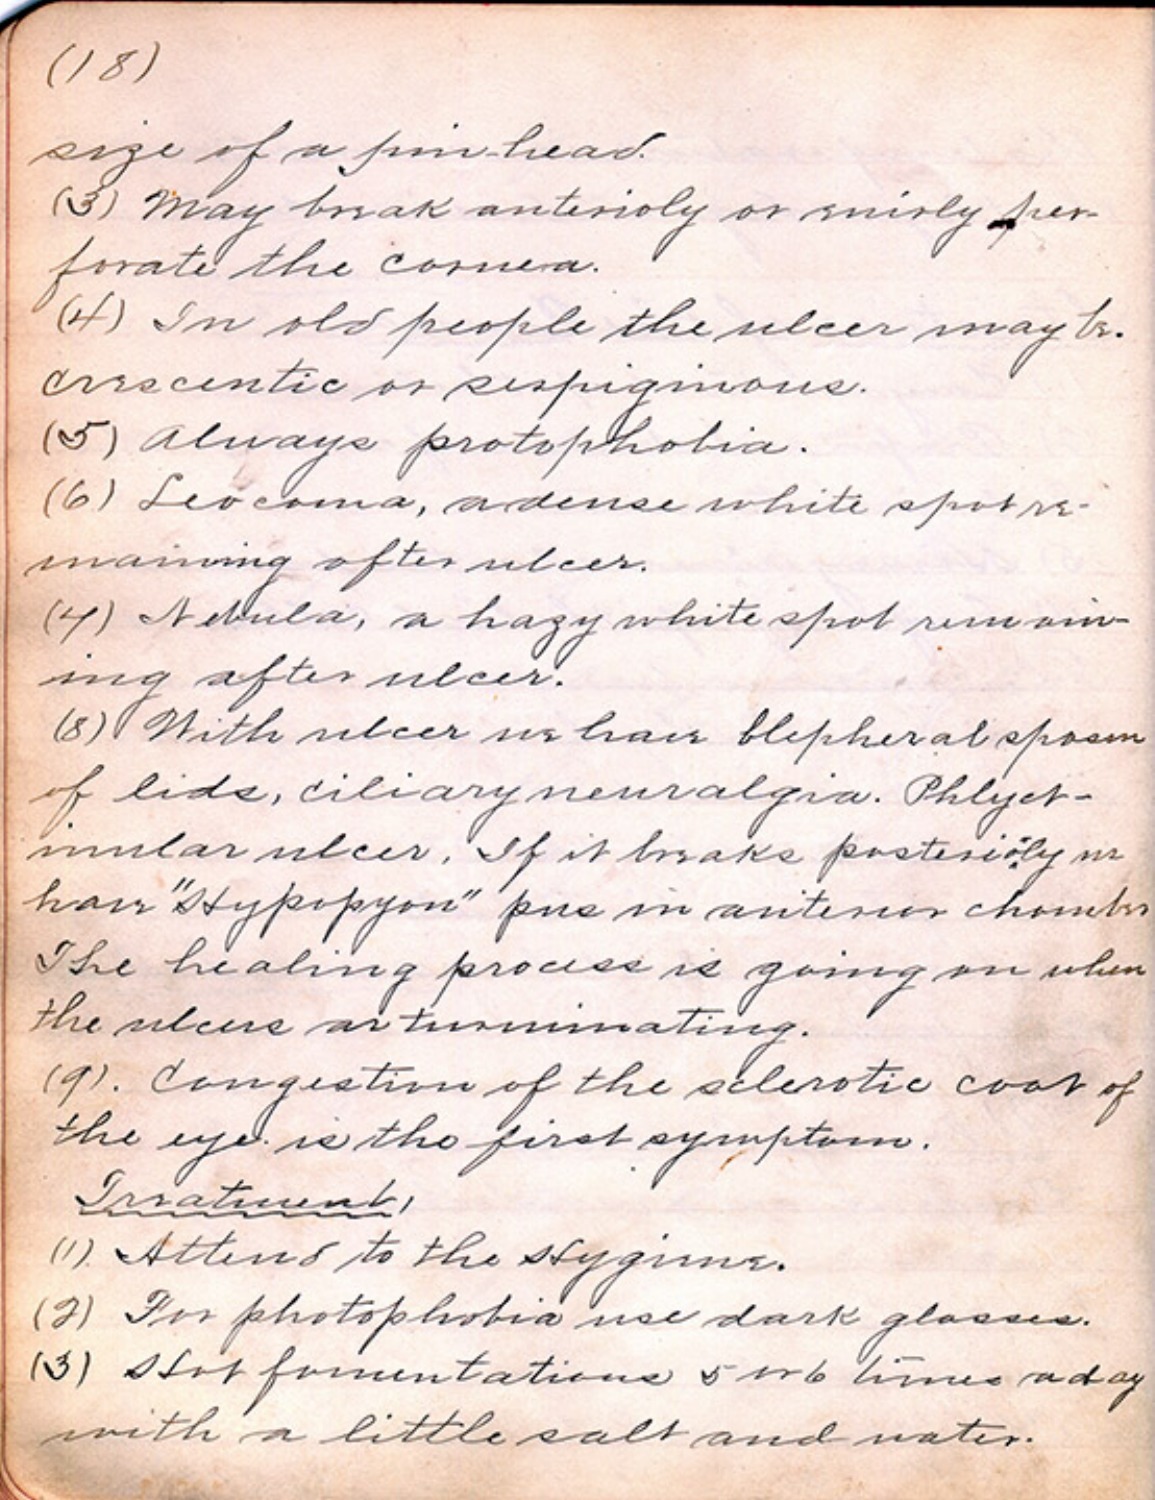 (18)
size of a pin-head.
(3) May break anterioly or enirly per-
forate the cornea.
(4) In old people the ulcer may be.
crescentic or serpiginous.
(5) Always protophobia.
(6) Leocoma, a dense white spot re-
maining after ulcer.
(7) Nebula, a hazy white spot remain-
ing after ulcer.
(8) With ulcer we have blepheral spasm
of lids, ciliary neuralgia. Phlyct-
inular ulcer. If it breaks posterioly we
have "Hypopyon" pus in anterior chamber
The healing process is going on when
the ulcers ar turminating.
(9). Congestion of the sclerotic coat of
the eye. is the first symptom.
Treatment,
(1). Attend to the Hygiene.
(2) For photophobia use dark glasses.
(3) Hot fomentations 5 or 6 times a day
with a little salt and water.